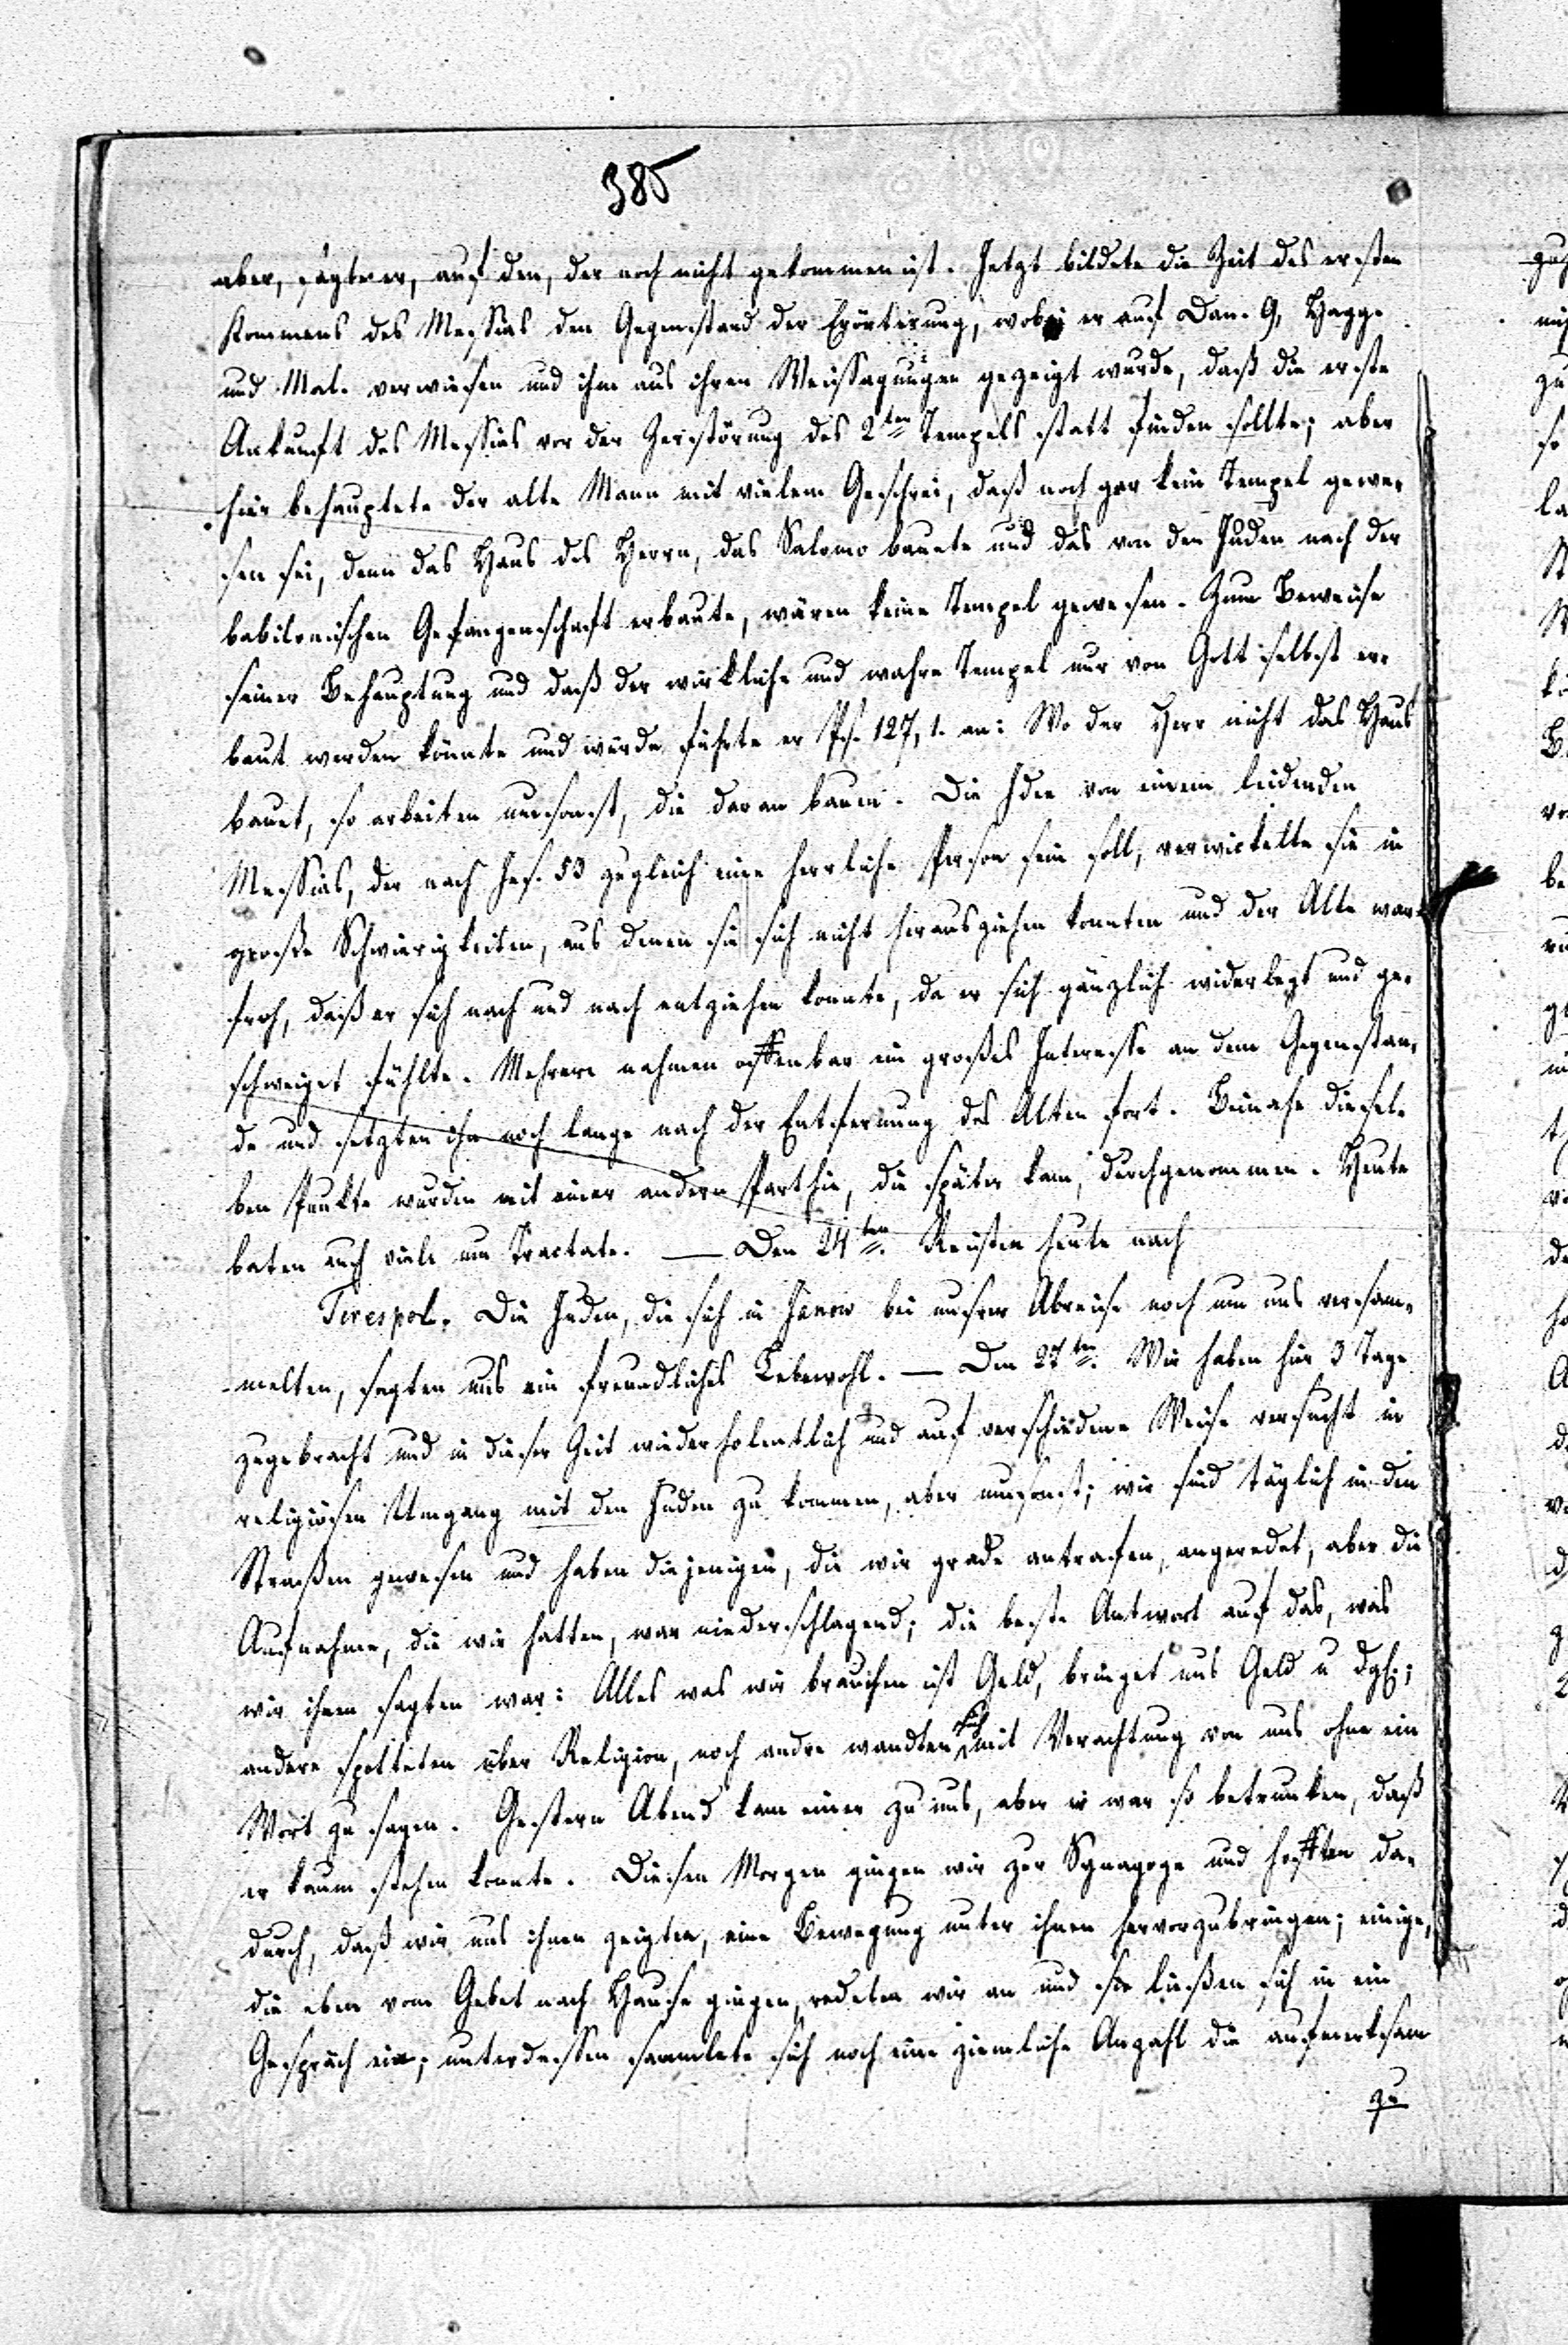 385
aber, sagte er, auf den, der noch nicht gekommen ist. Jetzt bildete die Zeit des ersten
Kommens des Messias den Gegenstand der Erörterung, wobei er auf Dan. 9, Hagg.
und Mal. verwiesen und ihm aus ihren Weissagungen gezeigt wurde, daß die erste
Ankunft des Messias vor der Zerstörung des 2ten Tempels statt finden sollte; aber
hier behauptete der alte Mann mit vielem Geschrei, daß noch gar kein Tempel gewe-
sen sei, denn das Haus des Herrn, das Salomo bauete und das von den Juden nach der
babilonischen Gefangenschaft erbaute, wären keine Tempel gewesen. Zum Beweise
seiner Behauptung und daß der wirkliche und wahre Tempel nur von Gott selbst er-
baut werden könnte und würde führte er Ps. 127, 1. an: Wo der Herr nicht das Haus
bauet, so arbeiten umsonst, die daran bauen. Die Idee von einem leidenden
Messias, der nach Jes. 53 zugleich eine herrliche Person sein soll, verwickelte sie in
große Schwierigkeiten, aus denen sie sich nicht herausziehen konnten und der Alte war
froh, daß er sich nach und nach entziehen konnte, da er sich gänzlich widerlegt und ge-
schweiget fühlte. Mehrere nahmen offenbar ein großes Interesse an dem Gegenstan-
de und setzten ihn noch lange nach der Entfernung des Alten fort. Beinahe diesel-
ben Punkte wurden mit einer andern Parthie, die später kam, durchgenommen. Heute
baten auch viele um Tractate. — Den 24ten. Reisten heute nach
Terespol. Die Juden, die sich in Janow bei unsrer Abreise noch um uns versam-
melten, sagten uns ein freundliches Lebewohl. — Den 27ten. Wir haben hier 3 Tage
zugebracht und in dieser Zeit wiederholentlich und auf verschiedene Weise versucht in
religiösen Umgang mit den Juden zu kommen, aber umsonst; wir sind täglich in den
Straßen gewesen und haben diejenigen, die wir grade antrafen, angeredet, aber die
Aufnahme, die wir hatten, war niederschlagend; die beste Antwort auf das, was
wir ihnen sagten war: Alles was wir brauchen ist Geld, bringet uns Geld u dgl.;
andere spotteten über Religion, noch andre wandten sich mit Verachtung von uns ohne ein
Wort zu sagen. Gestern Abend kam einer zu uns, aber er war so betrunken, daß
er kaum stehen konnte. Diesen Morgen gingen wir zur Synagoge und hofften da-
durch, daß wir uns ihnen zeigten, eine Bewegung unter ihnen hervorzubringen; einige,
die eben vom Gebet nach Hause gingen, redeten wir an und sie ließen sich in ein
Gespräch ein; unterdessen sammlete sich noch eine ziemliche Anzahl die aufmerksam
zu